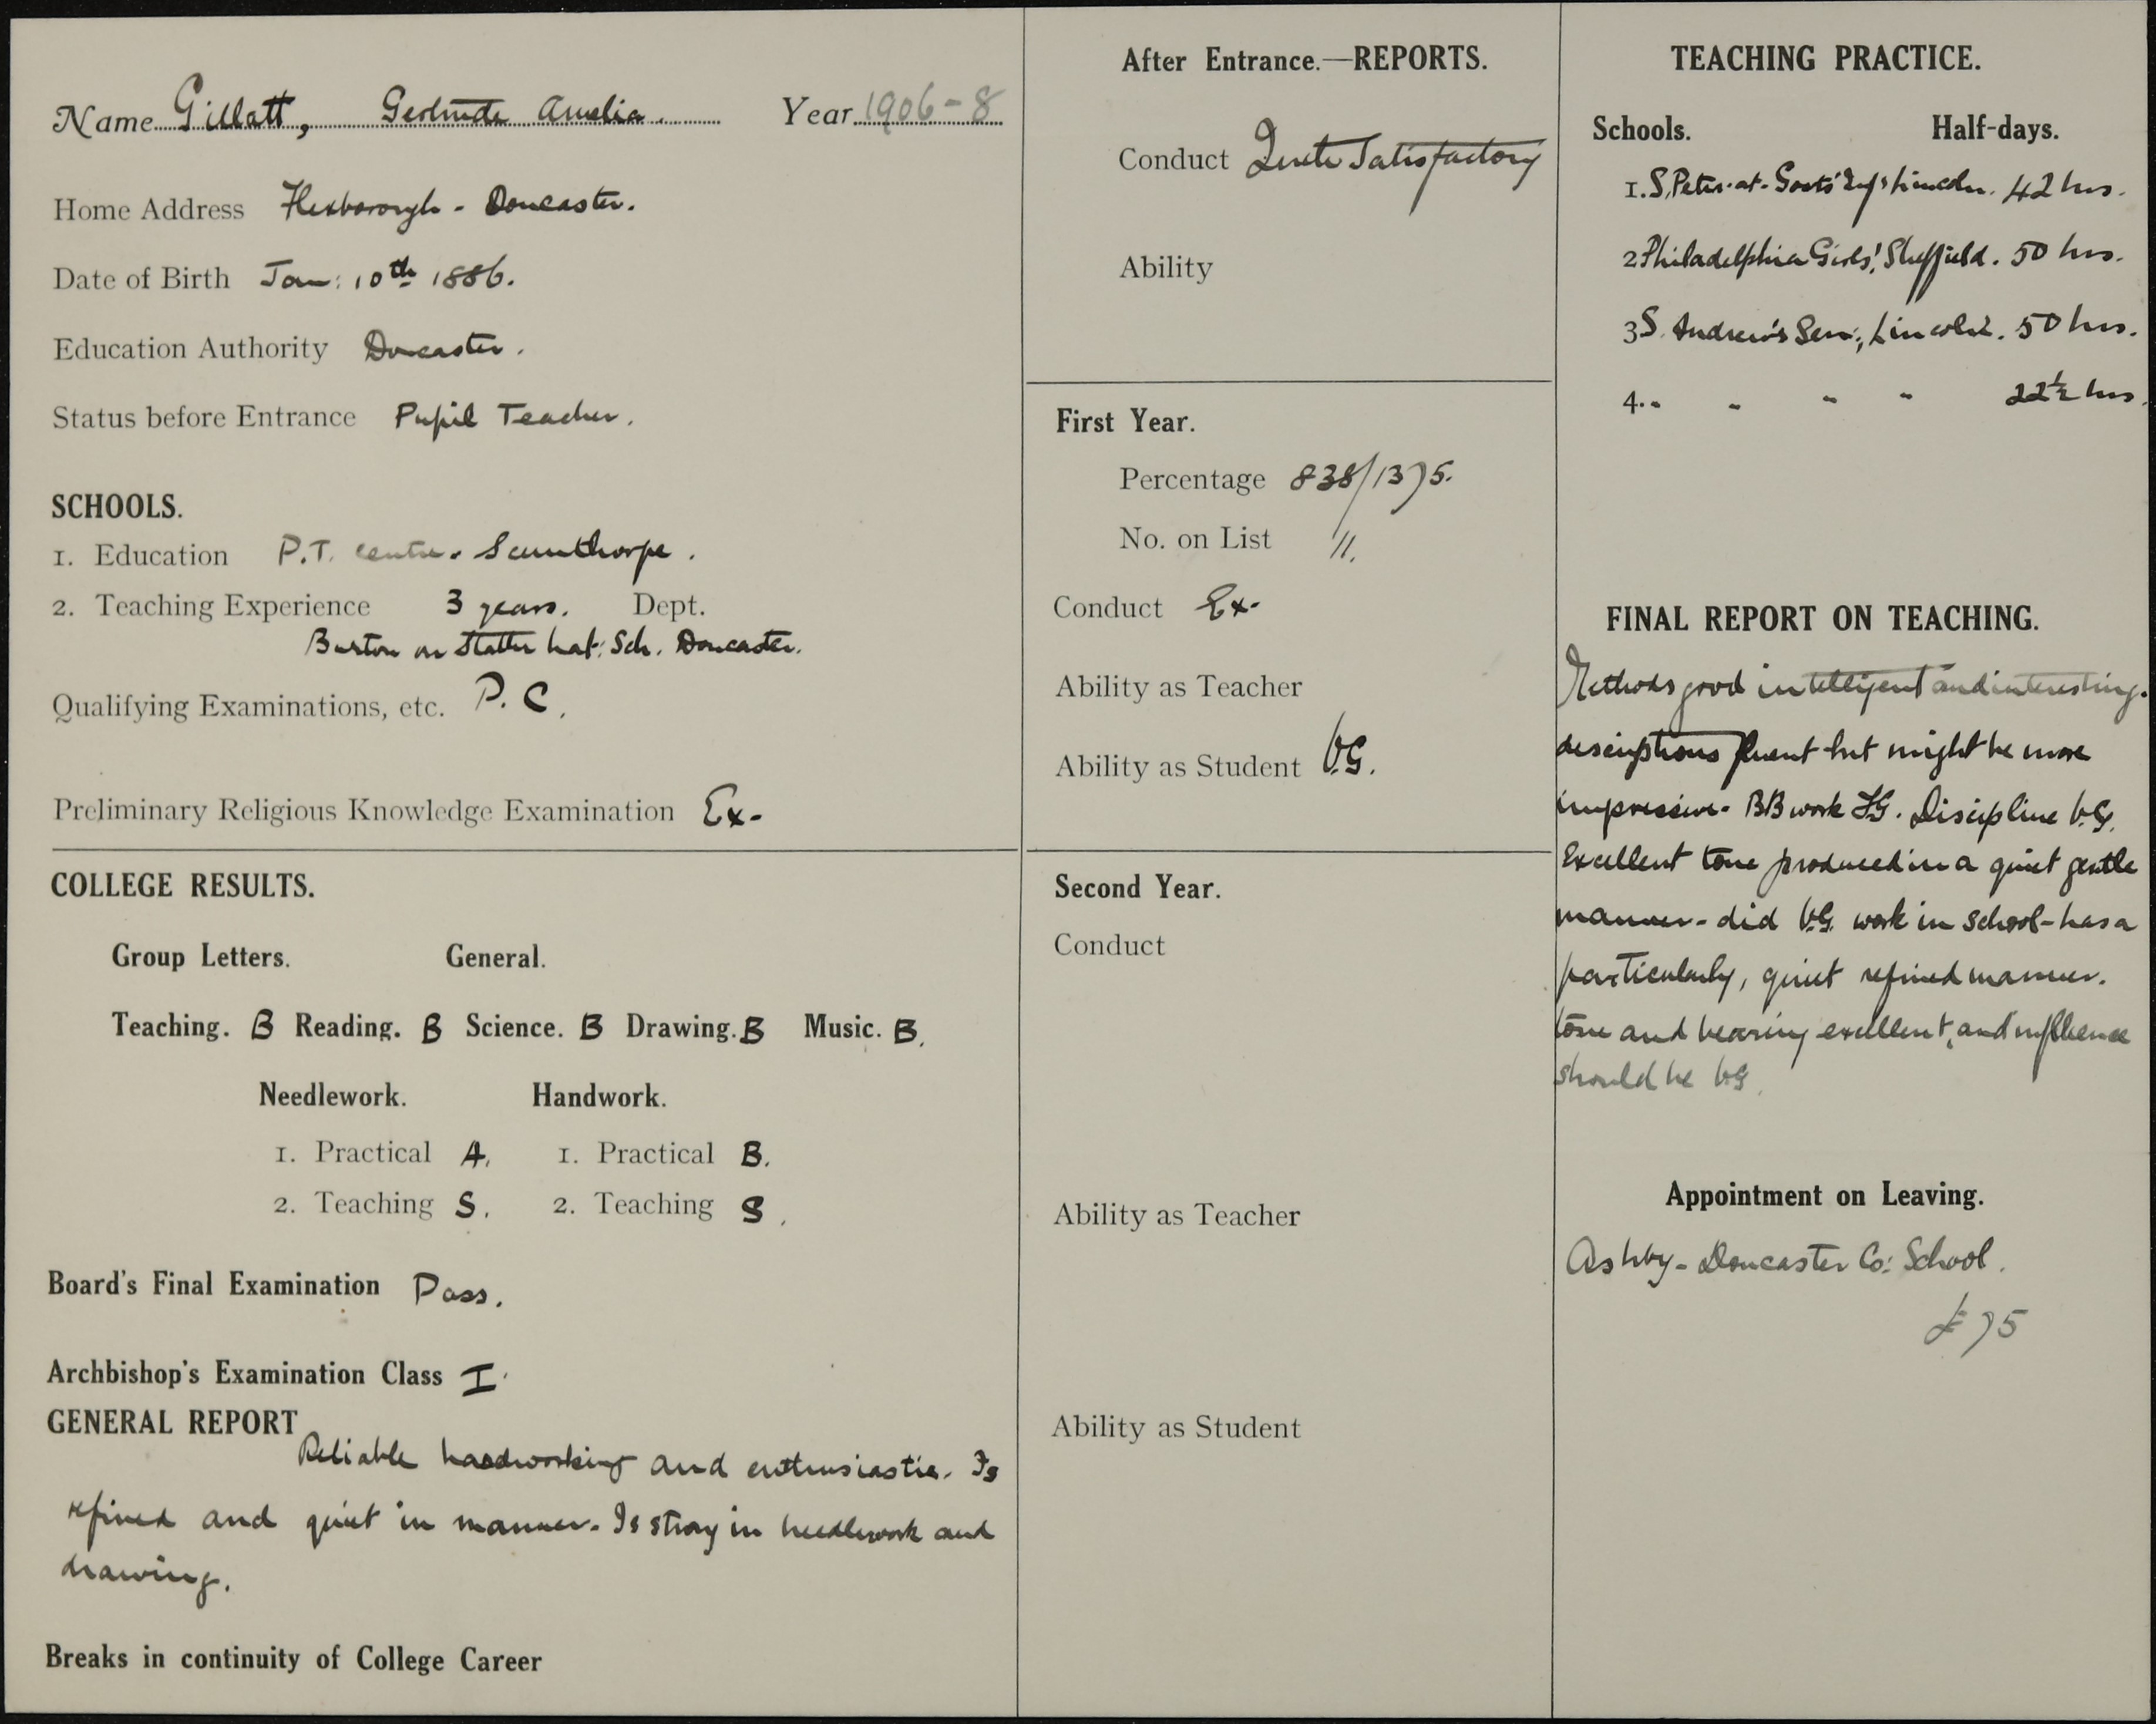 Name Gillatt, Gertrude Amelia. Year 1906-8
Home Address Flixborough - Doncaster.
Date of Birth Jan: 10th 1886.
Education Authority Doncaster.
Status before Entrance Pupil Teacher.
SCHOOLS.
1. Education P.T. centre. Scunthorpe.
2. Teaching Experience 3 years. Dept.
Burton on Stather Nat: Sch. Doncaster.
Qualifying Examinations, etc. P.C.
Preliminary Religious Knowledge Examination Ex-
COLLEGE RESULTS.
Group Letters. General.
Teaching. B Reading. B Science. B Drawing. B Music. B.
Needlework. Handwork.
1. Practical A. 1. Practical B.
2. Teaching S. 2. Teaching S.
Board's Final Examination Pass.
Archbishop's Examination Class I.
GENERAL REPORT
Reliable hardworking and enthusiastic. Is
refined and quiet in manner. Is strong in needlework and
drawing.
Breaks in continuity of College Career
After Entrance.—REPORTS.
Conduct Quite Satisfactory
Ability
First Year.
Percentage 838/1375.
No. on List 11.
Conduct Ex-
Ability as Teacher
Ability as Student V.G.
Second Year.
Conduct
Ability as Teacher
Ability as Student
TEACHING PRACTICE.
Schools. Half-days.
1. S. Peter-at-Gowts' Infs Lincoln. 42 hrs.
2 Philadelphia Girls', Sheffield. 50 hrs.
3 S. Andrew's Sen:, Lincoln. 50 hrs.
4. " " " " 22½ hrs.
FINAL REPORT ON TEACHING.
Methods good intelligent and interesting.
descriptions fluent but might be more
impressive. BB work F.G. Discipline V.G.
Excellent tone produced in a quiet gentle
manner - did V.G. work in school - has a
particularly, quiet refined manner.
tone and bearing excellent, and influence
should be V.G.
Appointment on Leaving.
Ashby - Doncaster Co: School.
£75